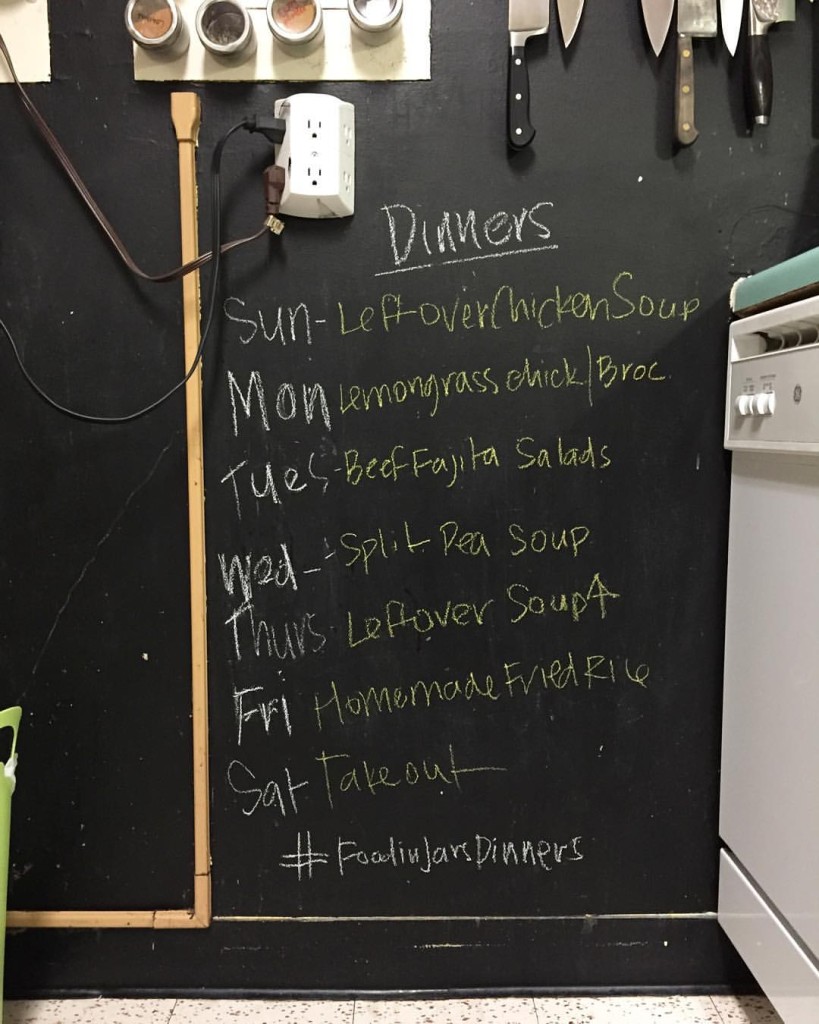 Dinners
Sun- Leftover Chicken Soup
Mon Lemongrass chick/Broc
Tues- Beef Fajita Salads
Wed - Split Pea Soup
Thurs Leftover Soup↑
Fri Homemade Fried Rice
Sat Takeout
#FoodinJarsDinners